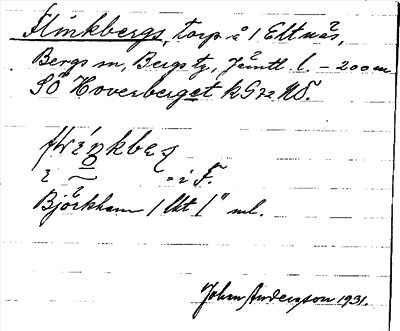 Flinkbergs, torp å 1 Eltnäs,
Bergs sn, Bergs tg, Jämtl. l. – 200 m
SÖ Hoverberget kG 72 NÖ.
i ~ = i F.
Björkhem 1 lkt 1" ml.
John Andersson 1931.